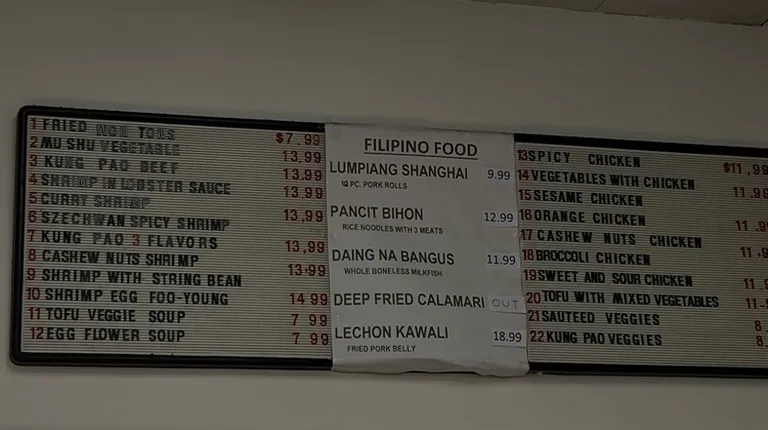 1 FRIED WON TONS $7.99
2 MU SHU VEGETABLE 13.99
3 KUNG PAO BEEF 13.99
4 SHRIMP IN LOBSTER SAUCE 13.99
5 CURRY SHRIMP
6 SZECHWAN SPICY SHRIMP 13,99
7 KUNG PAO 3 FLAVORS
8 CASHEW NUTS SHRIMP 13,99
9 SHRIMP WITH STRING BEAN 13.99
10 SHRIMP EGG FOO-YOUNG 14 99
11 TOFU VEGGIE SOUP 7 99
12 EGG FLOWER SOUP 7 99
FILIPINO FOOD
LUMPIANG SHANGHAI 9.99
10 PC. PORK ROLLS
PANCIT BIHON 12.99
RICE NOODLES WITH 3 MEATS
DAING NA BANGUS 11.99
WHOLE BONELESS MILKFISH
DEEP FRIED CALAMARI OUT
LECHON KAWALI 18.99
FRIED PORK BELLY
13 SPICY CHICKEN $11,99
14 VEGETABLES WITH CHICKEN 11.99
15 SESAME CHICKEN
16 ORANGE CHICKEN 11
17 CASHEW NUTS CHICKEN
18 BROCCOLI CHICKEN 11
19 SWEET AND SOUR CHICKEN 11
20 TOFU WITH MIXED VEGETABLES 11
21 SAUTEED VEGGIES 8
22 KUNG PAO VEGGIES 8